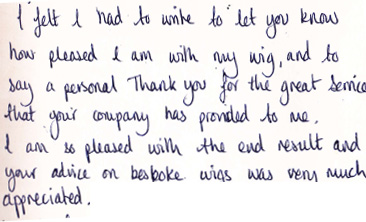 I felt I had to write to let you know
how pleased I am with my wig, and to
say a personal Thank you for the great service
that your company has provided to me.
I am so pleased with the end result and
your advice on bespoke wigs was very much
appreciated.